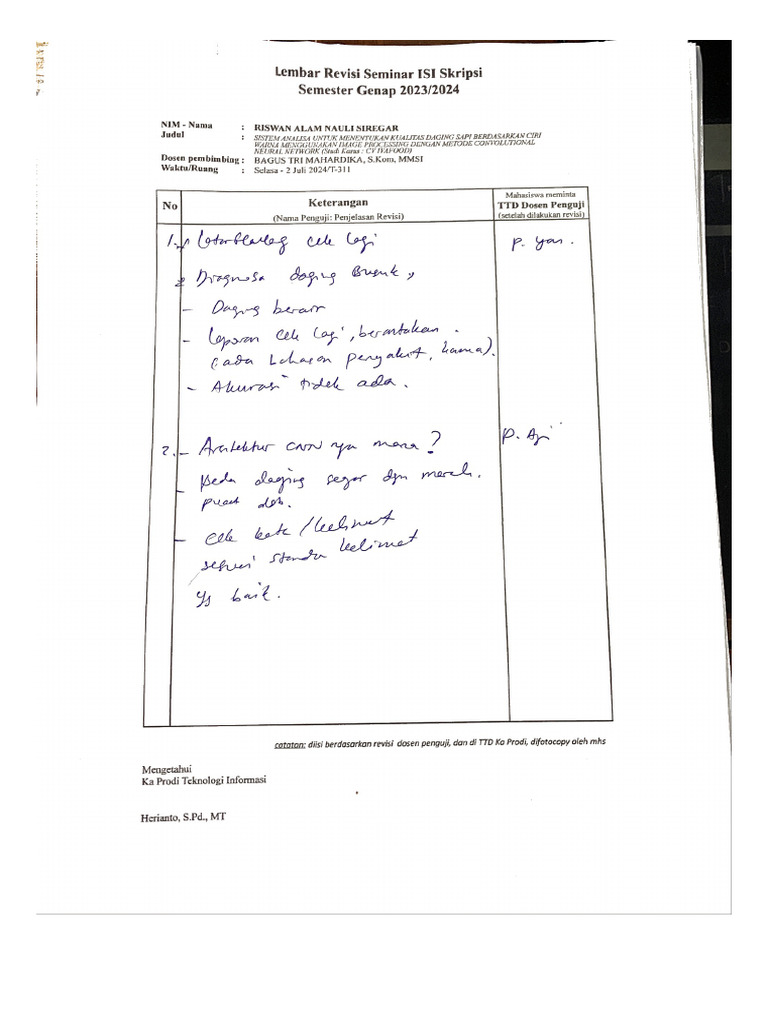 Lembar Revisi Seminar ISI Skripsi
Semester Genap 2023/2024
NIM - Nama : RISWAN ALAM NAULI SIREGAR
Judul : SISTEM ANALISA UNTUK MENENTUKAN KUALITAS DAGING SAPI BERDASARKAN CIRI
WARNA MENGGUNAKAN IMAGE PROCESSING DENGAN METODE CONVOLUTIONAL
NEURAL NETWORK (Studi Kasus : CV IVAFOOD)
Dosen pembimbing : BAGUS TRI MAHARDIKA, S.Kom, MMSI
Waktu/Ruang : Selasa - 2 Juli 2024/T-311
No
Keterangan
(Nama Penguji: Penjelasan Revisi)
Mahasiswa meminta
TTD Dosen Penguji
(setelah dilakukan revisi)
1. cek lagi
P. Yan.
Diagnosa daging Busuk
- Daging berair
- Laporan cek lagi, berantakan.
(ada bahasan penyakit, hama).
- Akurasi tidak ada.
2. - Arsitektur CNN nya mana?
P. Aji
- Beda daging segar dgn merah.
pucat dll.
- cek kata/kalimat
sesuai standar kalimat
yg baik.
catatan: diisi berdasarkan revisi dosen penguji, dan di TTD Ka Prodi, difotocopy oleh mhs
Mengetahui
Ka Prodi Teknologi Informasi
Herianto, S.Pd., MT